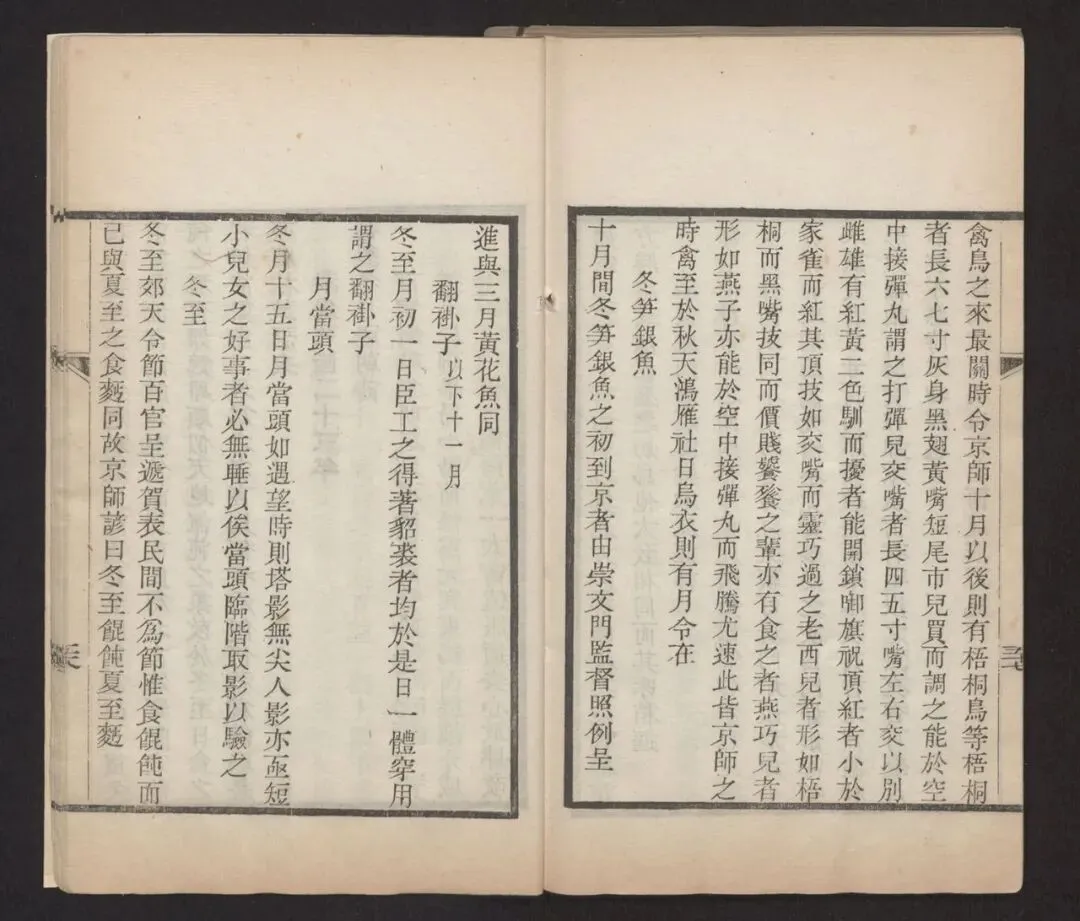 禽鳥之來最關時令京師十月以後則有梧桐鳥等梧桐
者長六七寸灰身黑翅黃嘴短尾市兒買而調之能於空
中接彈丸謂之打彈兒交嘴者長四五寸嘴左右交以別
雌雄有紅黃二色馴而擾者能開鎖啣旗祝頂紅者小於
家雀而紅其頂技如交嘴而靈巧過之老西兒者形如梧
桐而黑嘴技同而價賤饕餮之輩亦有食之者燕巧兒者
形如燕子亦能於空中接彈丸而飛騰尤速此皆京師之
時禽至於秋天鴻雁社日烏衣則有月令在
冬笋銀魚
十月間冬笋銀魚之初到京者由崇文門監督照例呈
進與三月黃花魚同
翻褂子以下十一月
冬至月初一日臣工之得著貂裘者均於是日一體穿用
謂之翻褂子
月當頭
冬月十五日月當頭如遇望時則塔影無尖人影亦亟短
小兒女之好事者必無睡以俟當頭臨階取影以驗之
冬至
冬至郊天令節百官呈遞賀表民間不為節惟食餛飩而
已與夏至之食麪同故京師諺曰冬至餛飩夏至麪